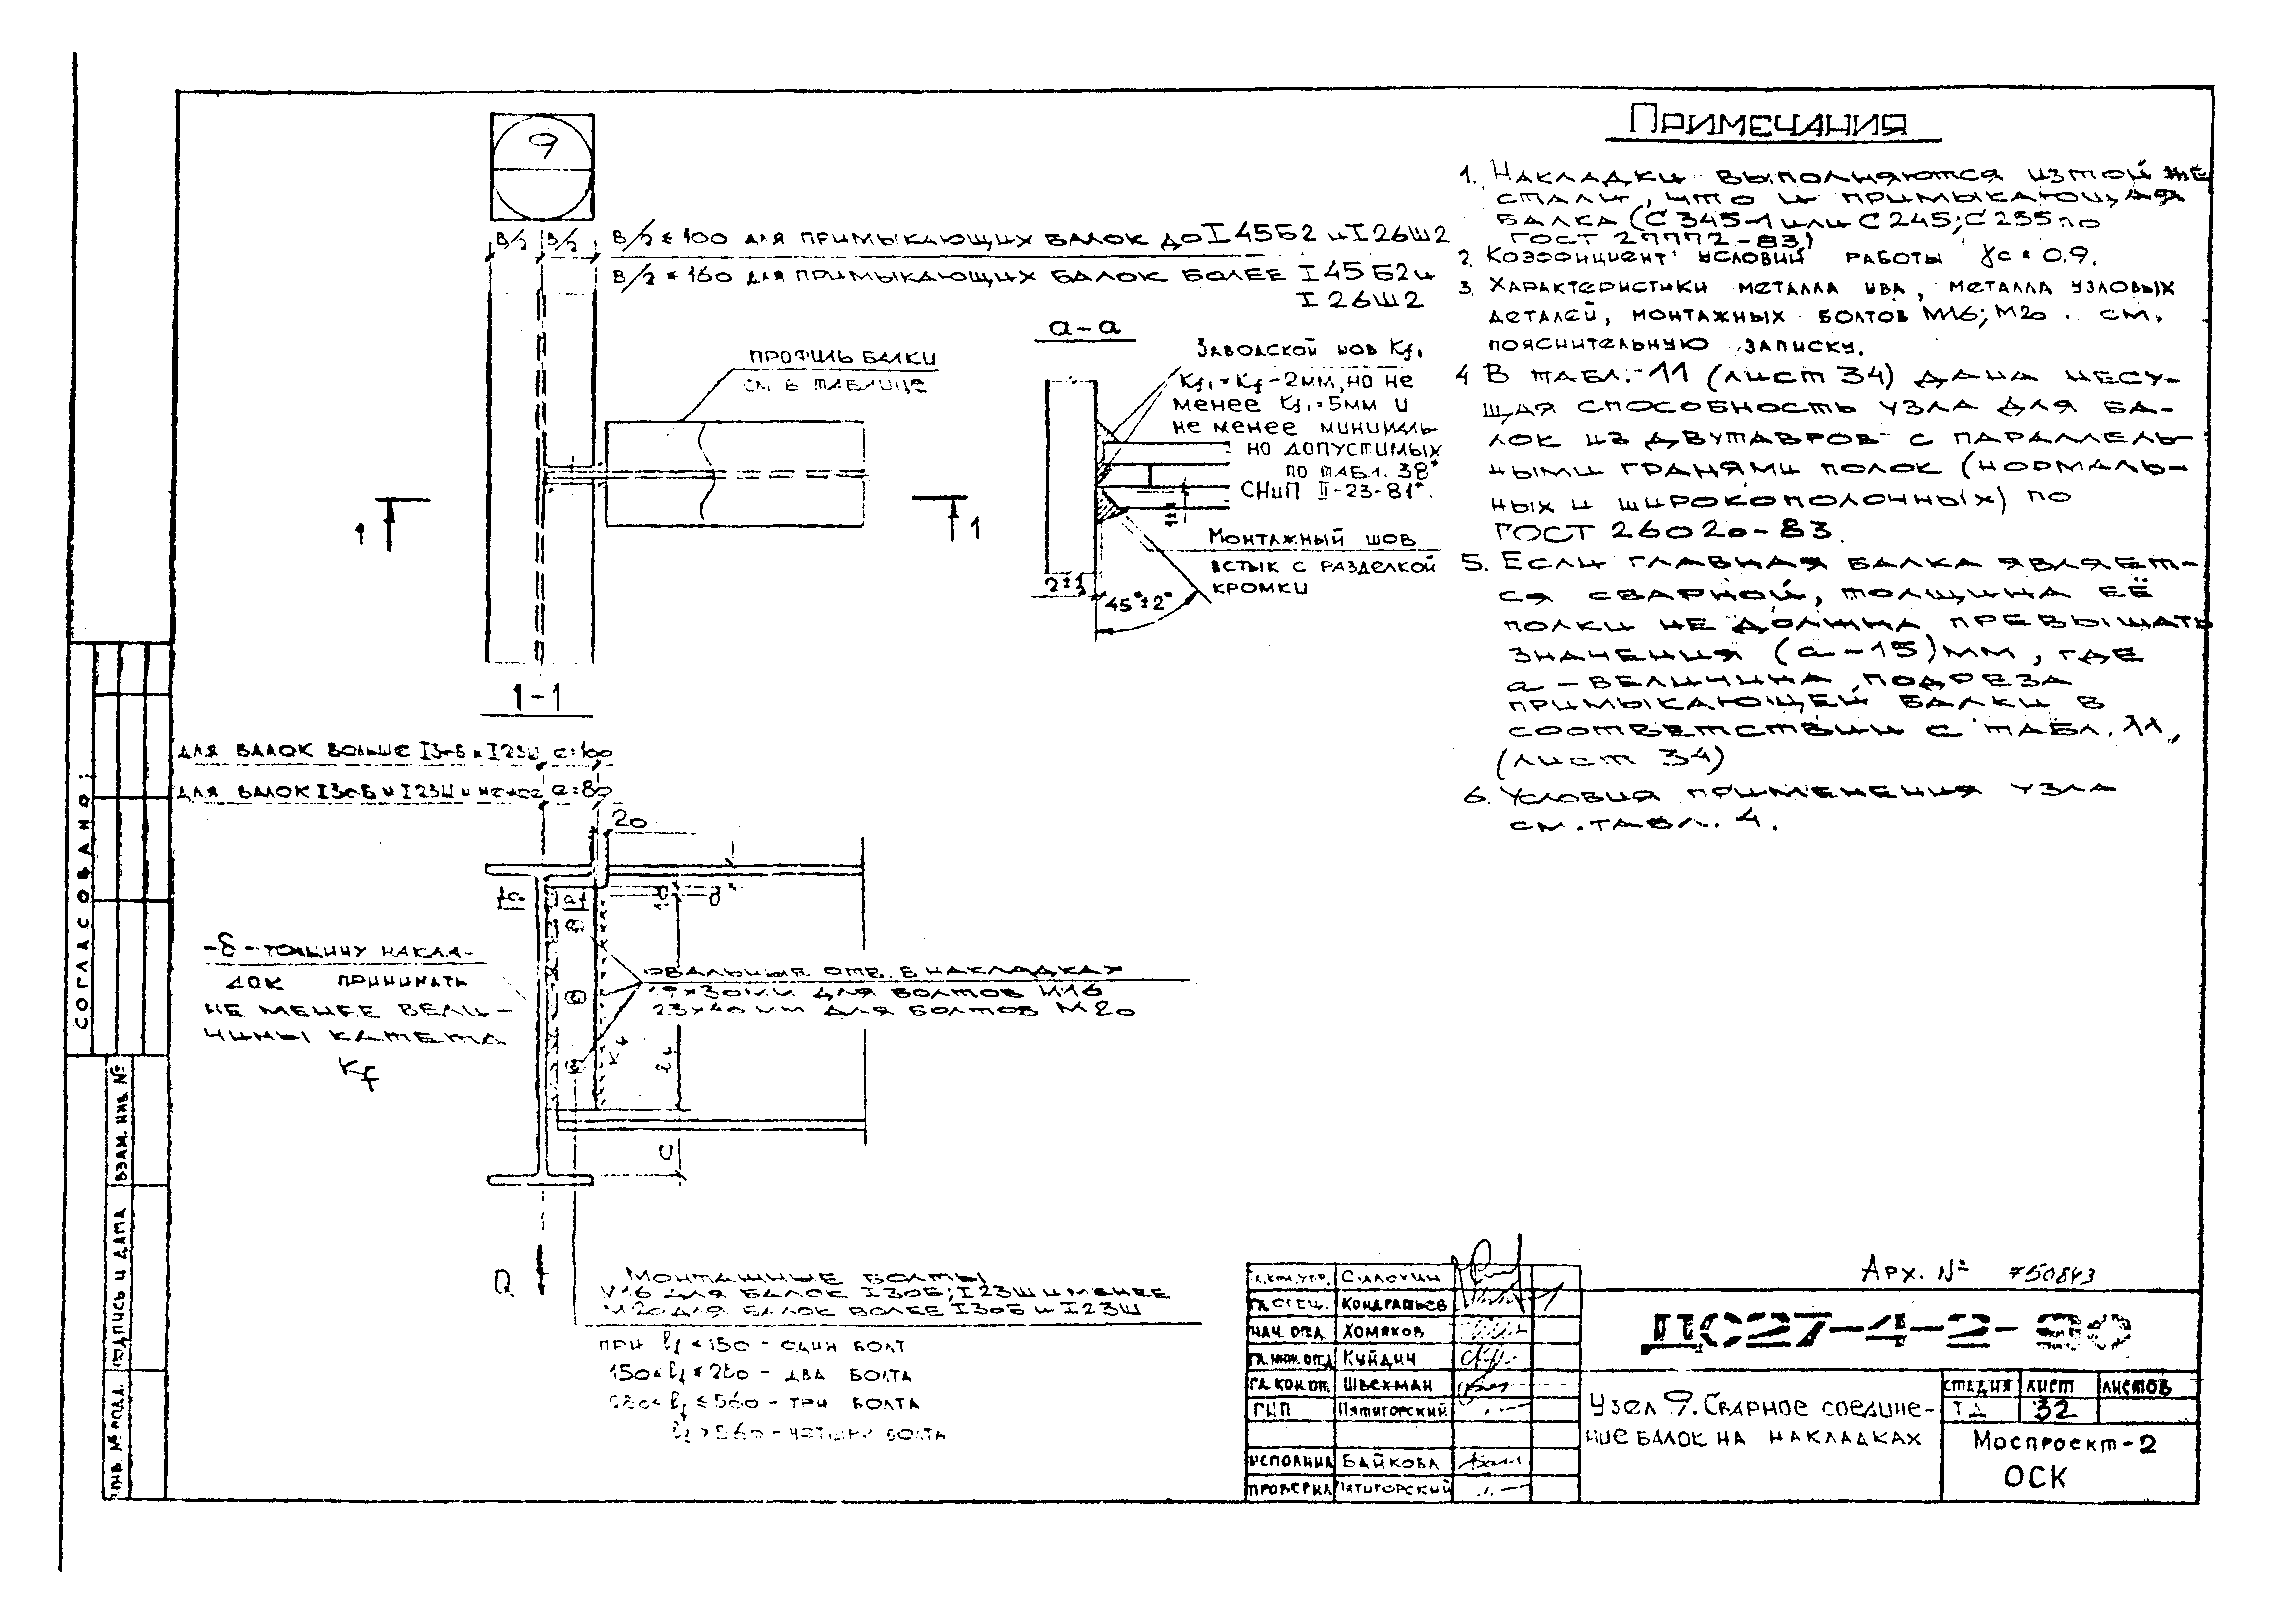 9
В/2 В/2
В/2 ≤ 100 для примыкающих балок до I 45Б2 и I 26Ш2
В/2 ≤ 160 для примыкающих балок более I 45Б2 и
I 26Ш2
профиль балки
см. в таблице
1 1
а-а
Заводской шов Kf1
Kf1 = Kf - 2мм, но не
менее Kf1 = 5мм и
не менее минималь-
но допустимых
по табл. 38*
СНиП II-23-81*.
Монтажный шов
встык с разделкой
кромки
2±1
45°±2°
1-1
для балок больше I30Б и I23Ш а=100
для балок I30Б и I23Ш и менее а=80
20
-δ- толщину накла-
док принимать
не менее вели-
чины катета
Kf
овальные отв. в накладках
19×30мм для болтов М16
23×40мм для болтов М20
Kf
а
с
Q
Монтажные болты
М16 для балок I30Б; I23Ш и менее
М20 для балок более I30Б и I23Ш
при ℓf ≤ 150 - один болт
150 < ℓf ≤ 280 - два болта
280 < ℓf ≤ 560 - три болта
ℓf > 560 - четыре болта
Примечания
1. Накладки выполняются из той же
стали, что и примыкающая
балка (С345-1 или С245; С255 по
ГОСТ 27772-83)
2. Коэффициент условий работы γс = 0.9.
3. Характеристики металла шва, металла узловых
деталей, монтажных болтов М16; М20 см.
пояснительную записку.
4 В табл. 11 (лист 34) дана несу-
щая способность узла для ба-
лок из двутавров с параллель-
ными гранями полок (нормаль-
ных и широкополочных) по
ГОСТ 26020-83.
5. Если главная балка являет-
ся сварной, толщина её
полки не должна превышать
значения (а-15)мм, где
а - величина подреза
примыкающей балки в
соответствии с табл. 11,
(лист 34)
6. Условия применения узла
см. табл. 4.
Согласовано:
Инв. № подл. Подпись и дата Взам. инв. №
Арх. № 750843
ДС27-4-2-90
Силохин
Гл. спец. Кондратьев
Нач. отд. Хомяков
Гл. инж. отд Куйдич
Гл. кон. от. Швехман
ГИП Пятигорский
Исполнил Байкова
Проверил Пятигорский
Узел 9. Сварное соедине-
ние балок на накладках
стадия лист листов
ТД 32
Моспроект-2
ОСК